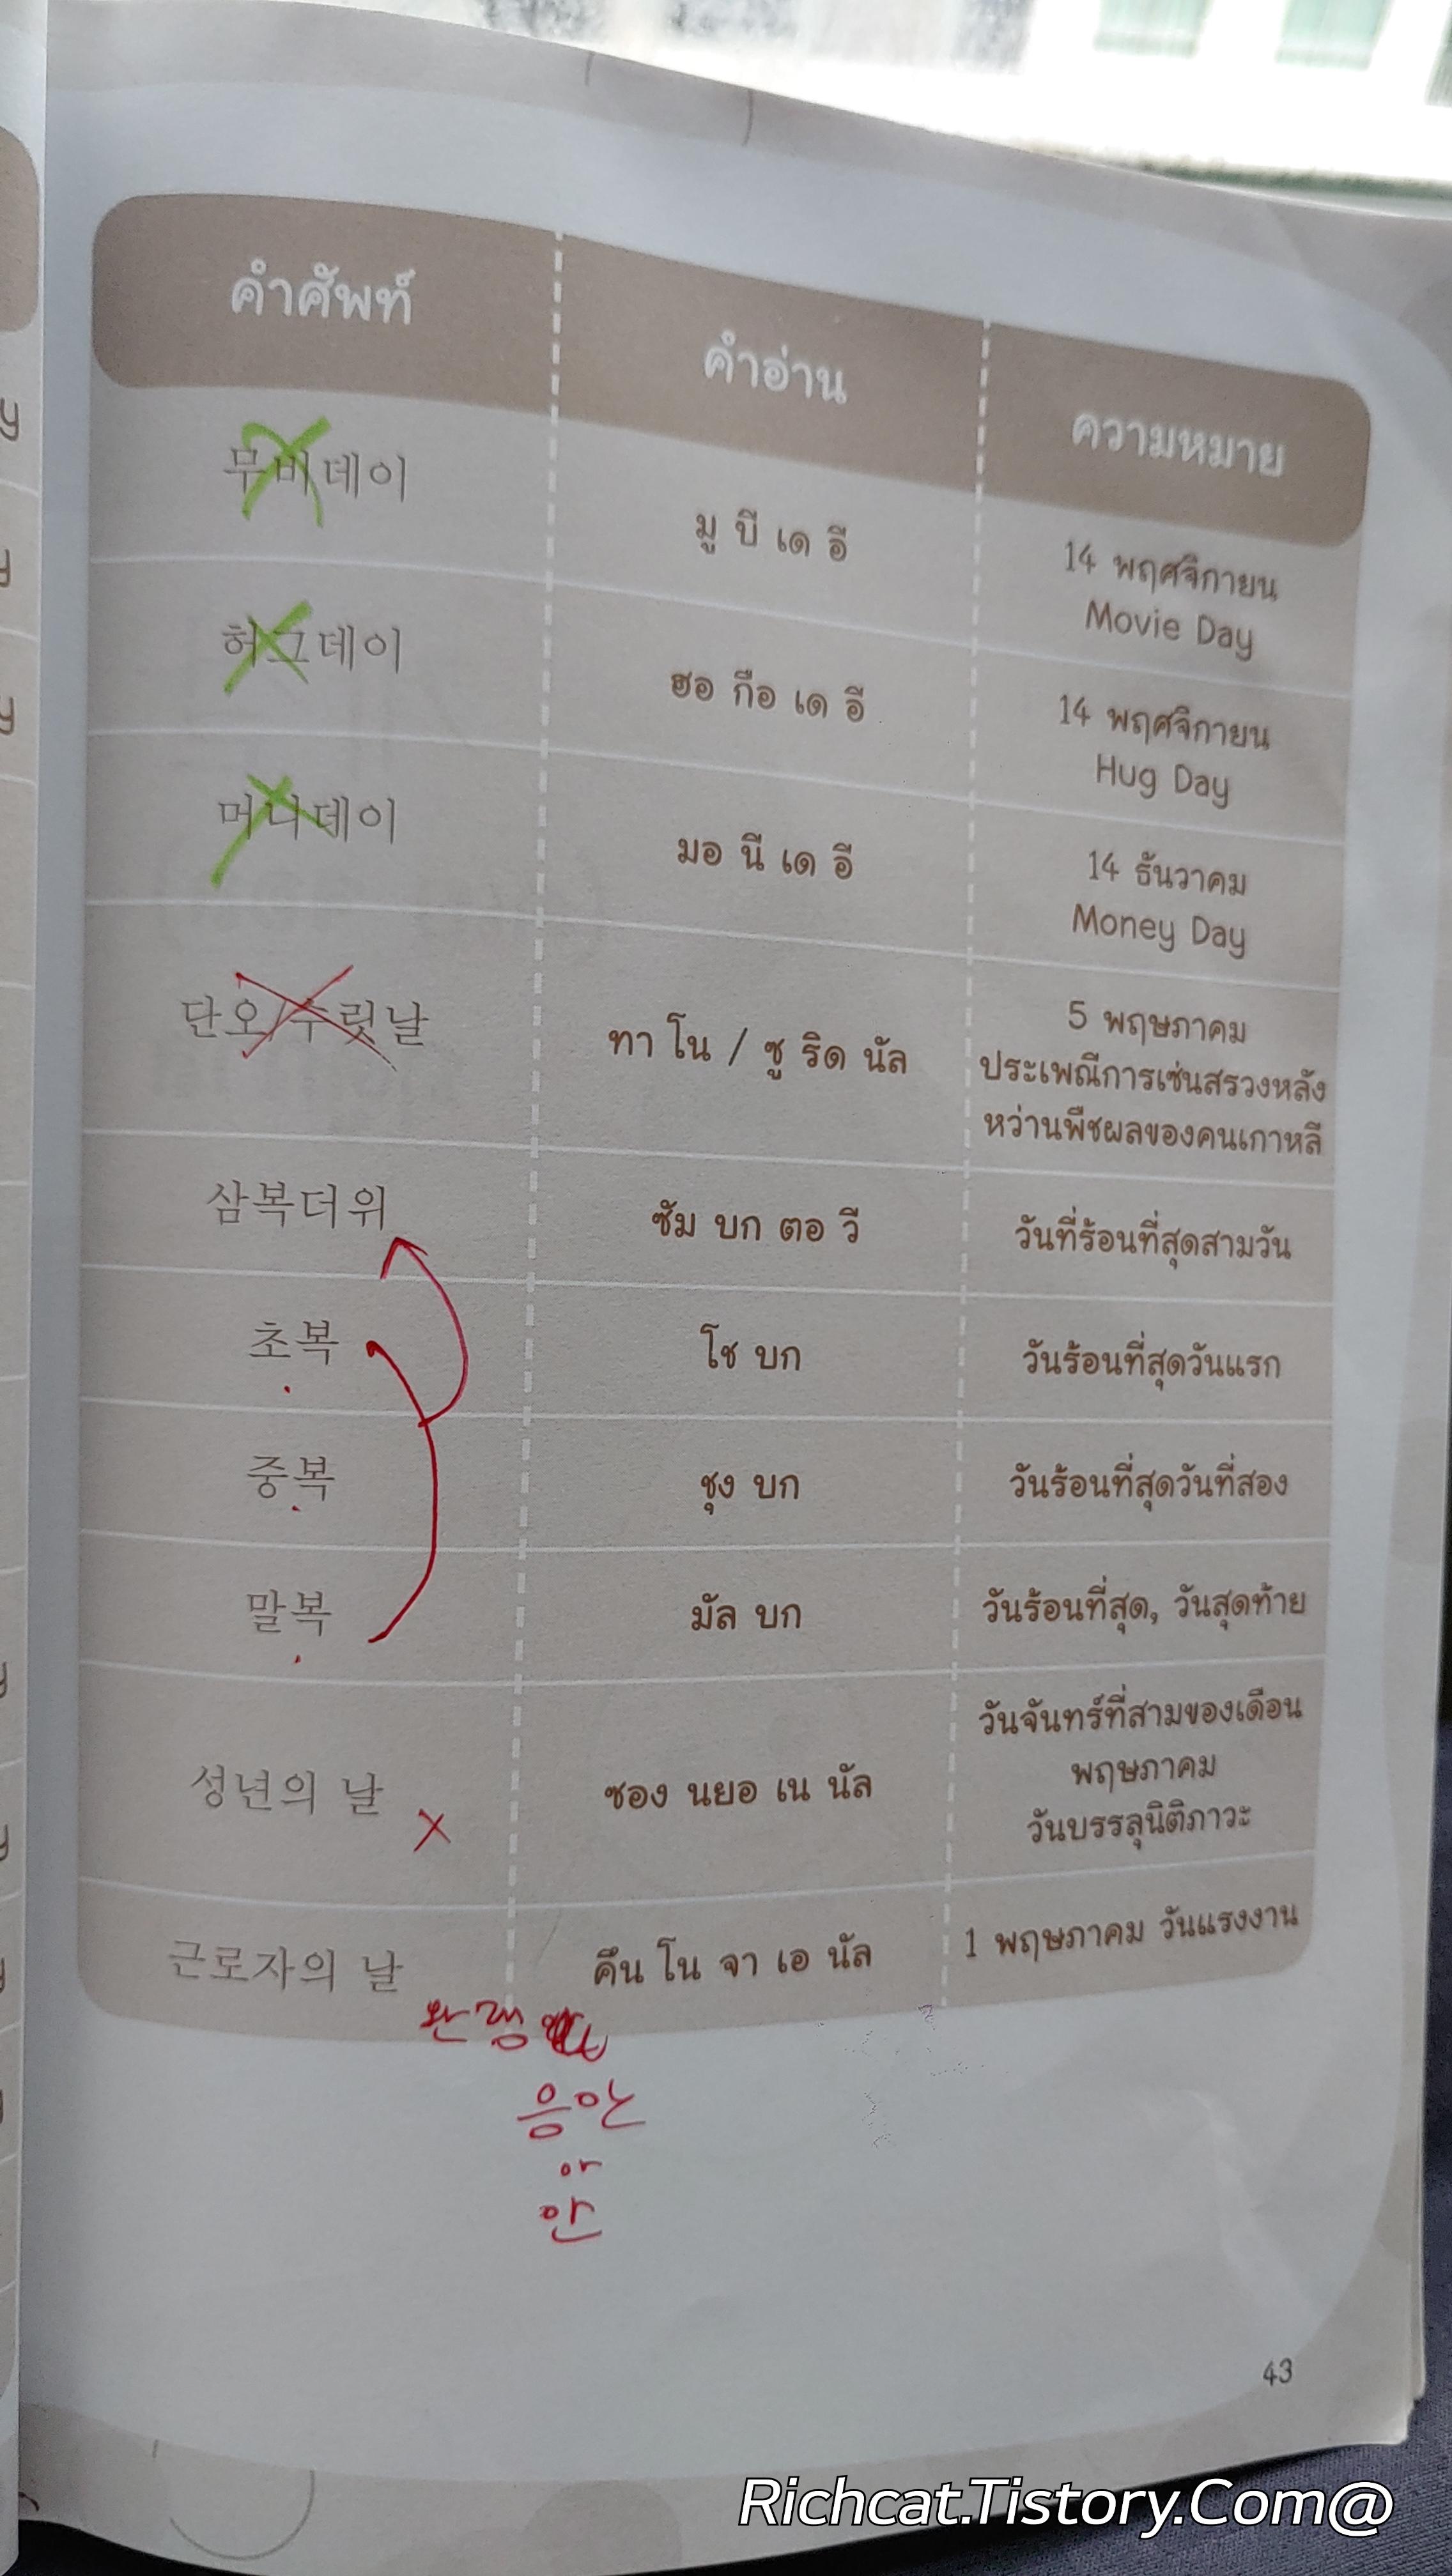 คำศัพท์ คำอ่าน ความหมาย
무비데이 มู บี เด อี 14 พฤศจิกายน
Movie Day
허그데이 ฮอ กือ เด อี 14 พฤศจิกายน
Hug Day
머니데이 มอ นี เด อี 14 ธันวาคม
Money Day
단오/수릿날 ทา โน / ซู ริด นัล 5 พฤษภาคม
ประเพณีการเซ่นสรวงหลัง
หว่านพืชผลของคนเกาหลี
삼복더위 ซัม บก ตอ วี วันที่ร้อนที่สุดสามวัน
초복 โช บก วันร้อนที่สุดวันแรก
중복 ชุง บก วันร้อนที่สุดวันที่สอง
말복 มัล บก วันร้อนที่สุด, วันสุดท้าย
성년의 날 ซอง นยอ เน นัล วันจันทร์ที่สามของเดือน
พฤษภาคม
วันบรรลุนิติภาวะ
근로자의 날 คึน โน จา เอ นัล 1 พฤษภาคม วันแรงงาน
음안
아
안
43
Richcat.Tistory.Com@